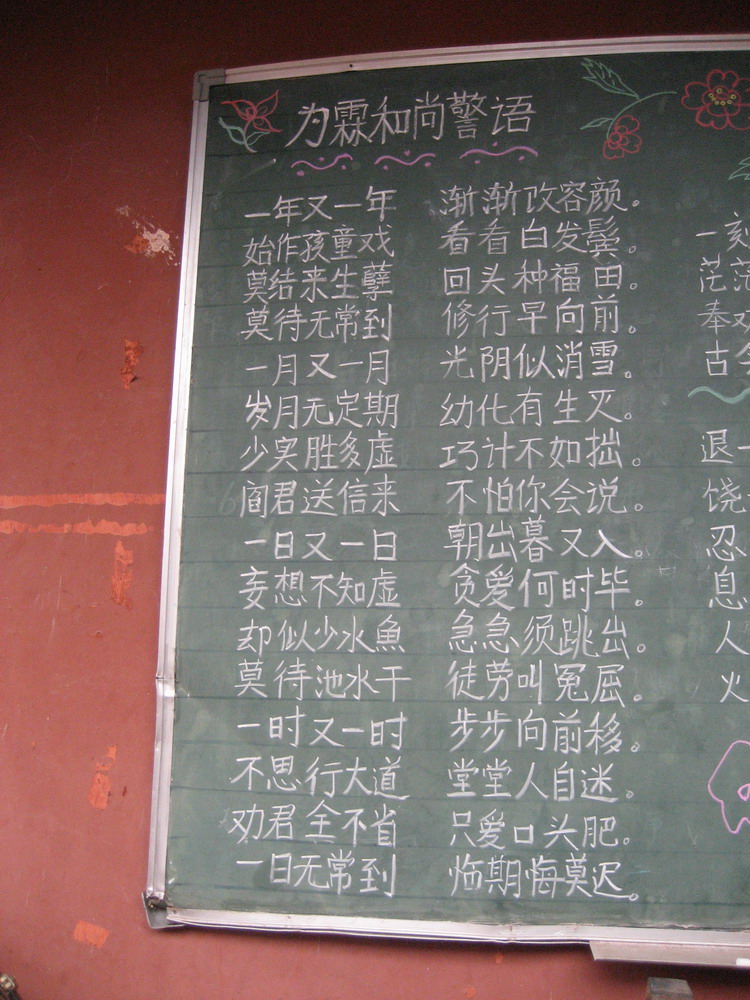 为霖和尚警语
一年又一年 渐渐改容颜。
始作孩童戏 看看白发鬓。
莫结来生孽 回头种福田。
莫待无常到 修行早向前。
一月又一月 光阴似消雪。
岁月无定期 幼化有生灭。
少实胜多虚 巧计不如拙。
阎君送信来 不怕你会说。
一日又一日 朝出暮又入。
妄想不知虚 贪爱何时毕。
却似少水魚 急急须跳出。
莫待池水干 徒劳叫冤屈。
一时又一时 步步向前移。
不思行大道 堂堂人自迷。
劝君全不省 只爱口头肥。
一日无常到 临期悔莫迟。
一刻
茫茫
奉劝
古
退一
饶
忍
息
人
火